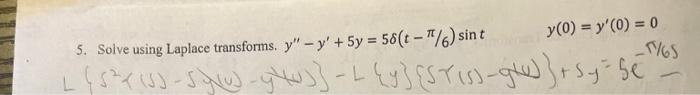 5. Solve using Laplace transforms. y'' − y' + 5y = 5δ(t − π/6) sin t y(0) = y'(0) = 0
L{s²Y(s) − sy(0) − y'(0)} − L{y}{sY(s) − y(0)} + 5y = 5e^(−π/6 s)